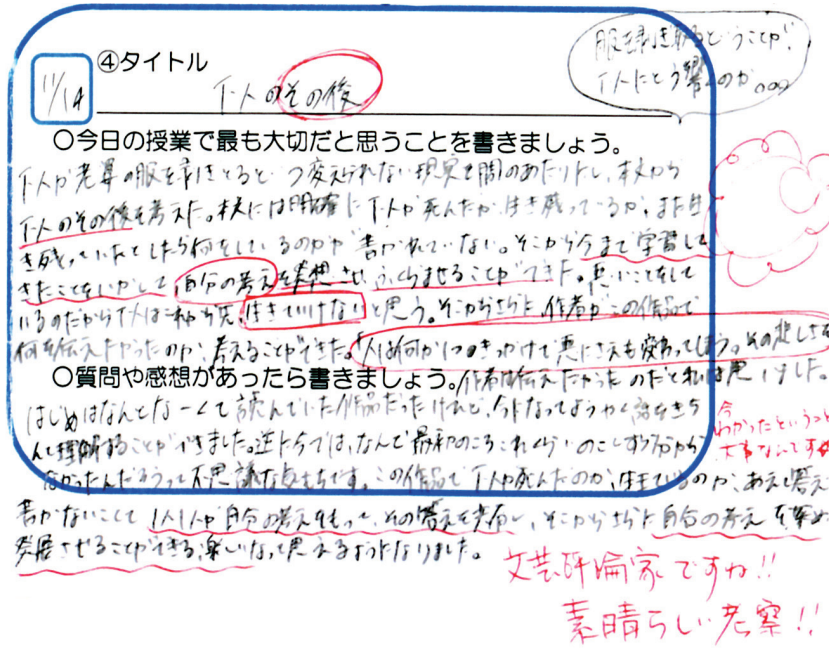 11/14
④タイトル
下人のその後
服を剥ぎ取るということが、
下人にどう響くのか。。。
○今日の授業で最も大切だと思うことを書きましょう。
下人が老婆の服を剥ぎとるという変えられない現実を目のあたりにし、本文から
下人のその後を考えた。本文には明確に下人が死んだか、生き残っているか、また生
き残っていたとしたら何をしているのかが書かれていない。そこから今まで学習して
きたことをいかして、自分の考えを発想させ、ふくらませることができた。悪いことをして
いるのだから下人はこれから先、生きていけないと思う。そこからさらに、作者がこの作品で
何を伝えたかったのか、考えることができた。人は何か1つのきっかけで悪にさえも変わってしまう。その悲しさを
○質問や感想があったら書きましょう。作者は伝えたかったのだと私は思いました。
はじめはなんとなーくで読んでいた作品だったけれど、今になってようやく話をきち
んと理解することができました。逆に今では、なんで最初のころこれくらいのこと
なかったんだろうって不思議な気もちです。この作品で下人が死んだのか、生きているのか、あえて答え
書かないことで1人1人が自分の考えをもって、その答えを共有し、そこからさらに自分の考えを深め
発展させることができる、楽しいなって思えるようになりました。
今
わかったということ
大事なんですね
文芸評論家ですね!!
素晴らしい考察!!